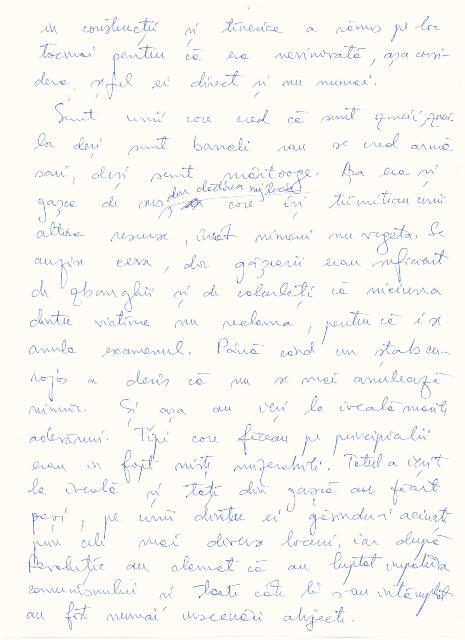 în construcții și tinerica a rămas pe loc
tocmai pentru că era nevinovată, așa consi-
dera, șeful ei direct și nu numai.
Sunt unii care cred că sunt zmei, zmei
lor deși sunt banali sau se cred armă
sari, deși sunt mârțoage. Așa era și
gașca de sus, din clădirea mijlocie care își trimiteau unii
altora resurse, încât nimeni nu vegeta. Se
auzise ceva, dar găzarii erau suficient
de ghanghii și de calculați că niciuna
dintre victime nu reclama, pentru că i se
anula examenul. Până când un ștab cu-
rajos a decis că nu se mai anulează
nimic. Și așa au ieșit la iveală multe
adevăruri. Tipi care făceau pe principialii
erau în fapt niște mizerabili. Totul a ieșit
la iveală și toți din gașcă au fost
pași, pe unii dintre ei găsindu-i aciuați
prin cele mai diverse locuri, iar după
Revoluție au clamat că au luptat împotriva
comunismului și toate câte li s-au întâmplat
au fost numai înscenări abjecte.